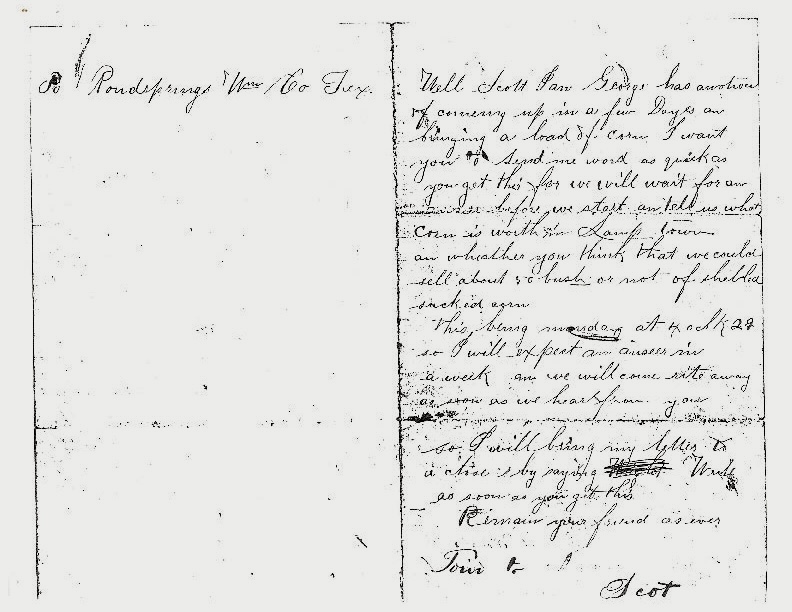 Po Rondsprings Wm Co Tex.
Well Scott I an George has a notion
of coming up in a few Dayes an
bringing a load of corn I want
you to send me word as quick as
you get this for we will wait for an
before we start an tell us what
corn is worth in Lamp town
an wheather you think that we could
sell about 50 bush or not of shelled
sacked corn
this being monday at 4 oclk 28
so I will expect an anseer in
a week an we will come rite away
as soon as we hear from you
so I will bring my letter to
a close by saying Write
as soon as you get this
Remain your friend as ever
Tom to
Scot